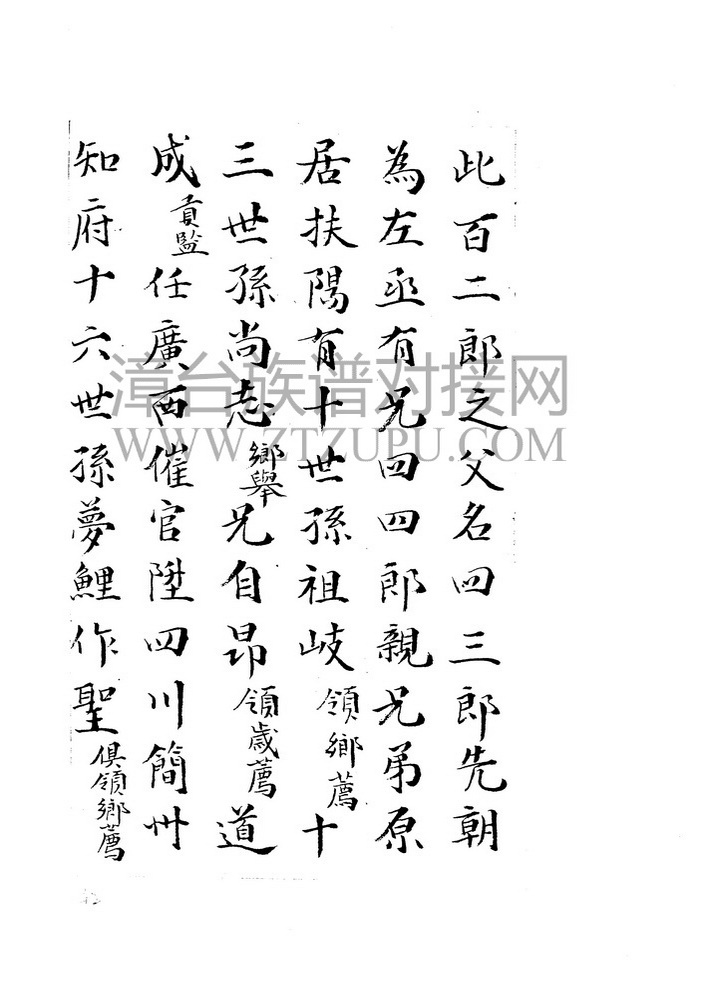 此百二郎之父名四三郎先朝
為左丞有兄四四郎親兄弟原
居扶陽有十世孫祖岐領鄉薦十
三世孫尚志鄉舉兄自昂領歲薦道
成貢監任廣西催官陞四川簡州
知府十六世孫夢鯉作聖俱領鄉薦
漳台族谱对接网
WWW.ZTZUPU.COM